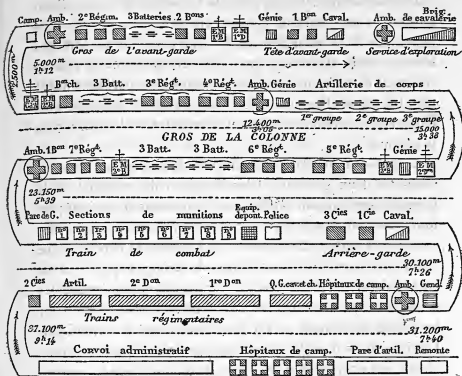 Camp. Amb. 2e Régim. 3 Batteries 2 Bons Génie 1 Bon Caval. Amb. Brig. de cavalerie
E M 1re B E M 1re D
Gros de l'avant-garde Tête d'avant-garde Service d'exploration
5.000m
1h12
2.500m
Bon ch. 3 Batt. 3e Régt. 4e Régt. Amb. Génie Artillerie de corps
1er groupe 2e groupe 3e groupe
12.400m
3h05
15.000
3h38
GROS DE LA COLONNE
Amb. 1 Bon 7e Régt. 3 Batt. 3 Batt. 6e Régt. 5e Régt. Génie
E M 2e B
23.150m
5h39
Parc de G. Sections de munitions Equip. de pont. Police 3 Cies 1 Cie Caval.
Train de combat Arrière-garde
30.100m
7h26
2 Cies Artil. 2e Don 1re Don Q. G. cav. et ch. Hôpitaux de camp. Amb. Gend.
Trains régimentaires
37.100m
9h14
31.200m
7h40
Convoi administratif Hôpitaux de camp. Parc d'artil. Remonte